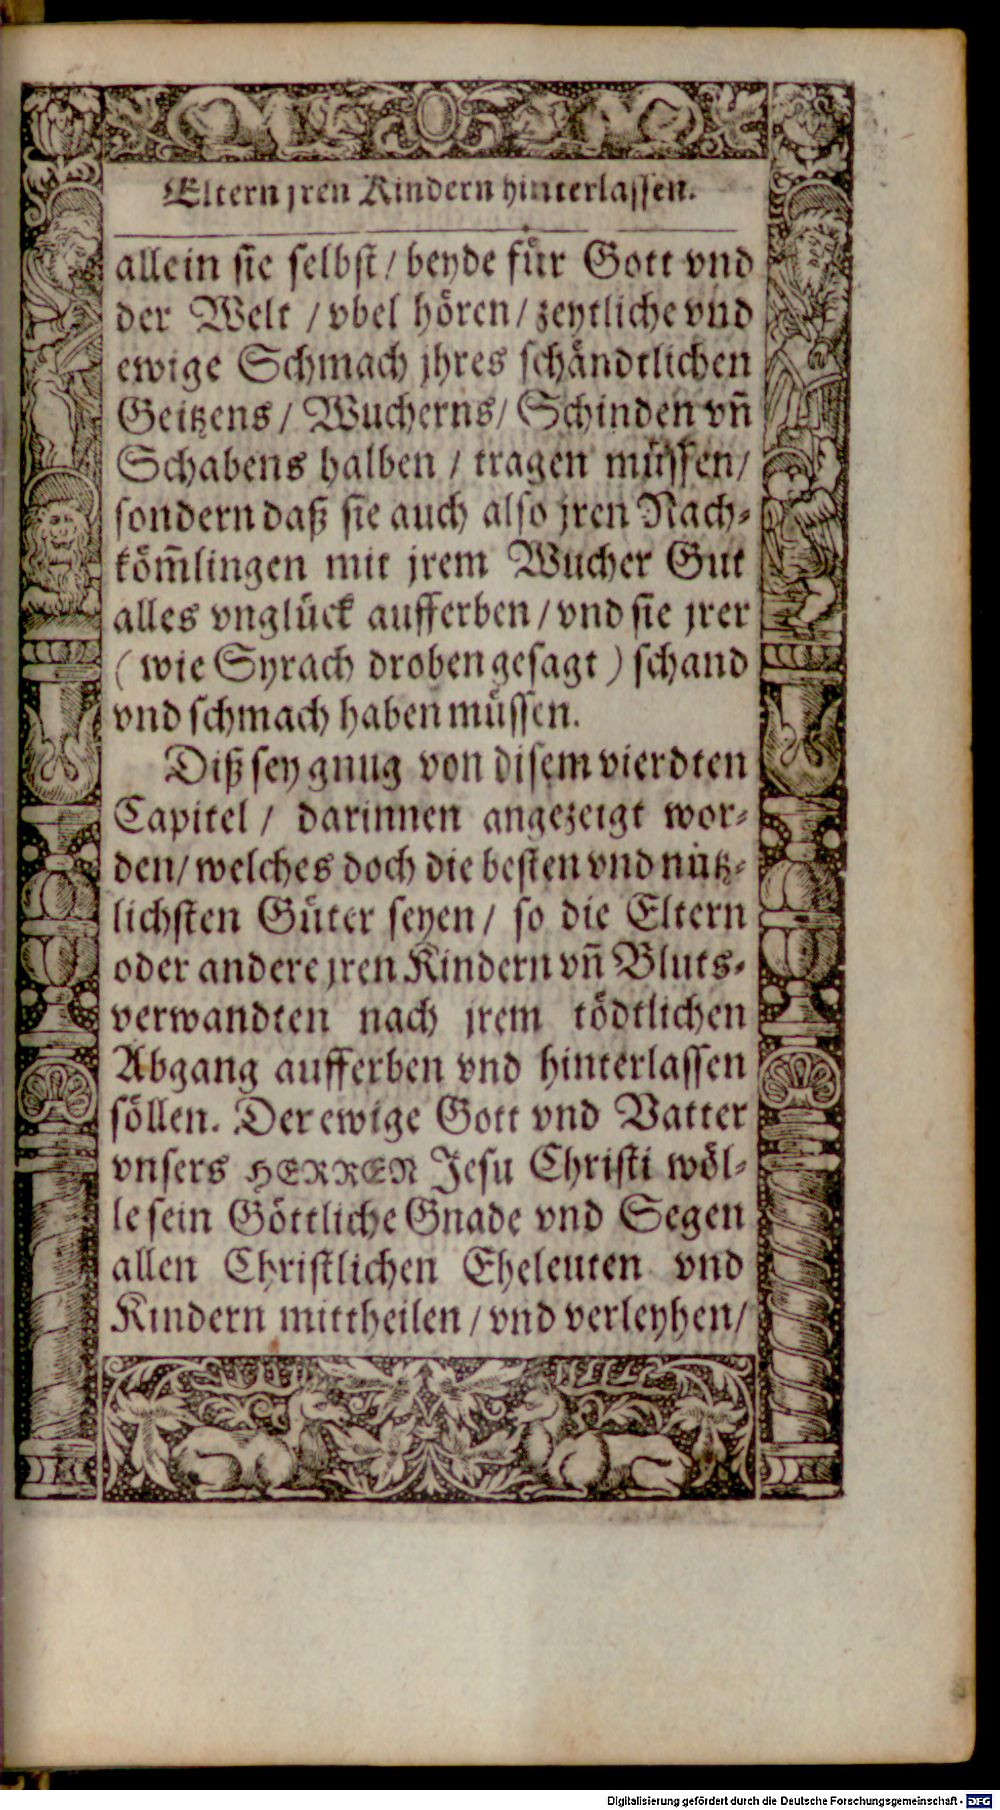 Eltern jren Kindern hinterlassen.
allein sie selbst / beyde für Gott vnd
der Welt / vbel hören / zeytliche vnd
ewige Schmach jhres schändtlichen
Geitzens / Wucherns / Schinden vñ
Schabens halben / tragen müssen /
sondern daß sie auch also jren Nach-
köm̄lingen mit jrem Wucher Gut
alles vnglück aufferben / vnd sie jrer
( wie Syrach droben gesagt ) schand
vnd schmach haben müssen.
Diß sey gnug von disem vierdten
Capitel / darinnen angezeigt wor-
den / welches doch die besten vnd nütz-
lichsten Güter seyen / so die Eltern
oder andere jren Kindern vñ Bluts-
verwandten nach jrem tödtlichen
Abgang aufferben vnd hinterlassen
söllen. Der ewige Gott vnd Vatter
vnsers HERREN Jesu Christi wöl-
le sein Göttliche Gnade vnd Segen
allen Christlichen Eheleuten vnd
Kindern mittheilen / vnd verleyhen /
Digitalisierung gefördert durch die Deutsche Forschungsgemeinschaft - DFG